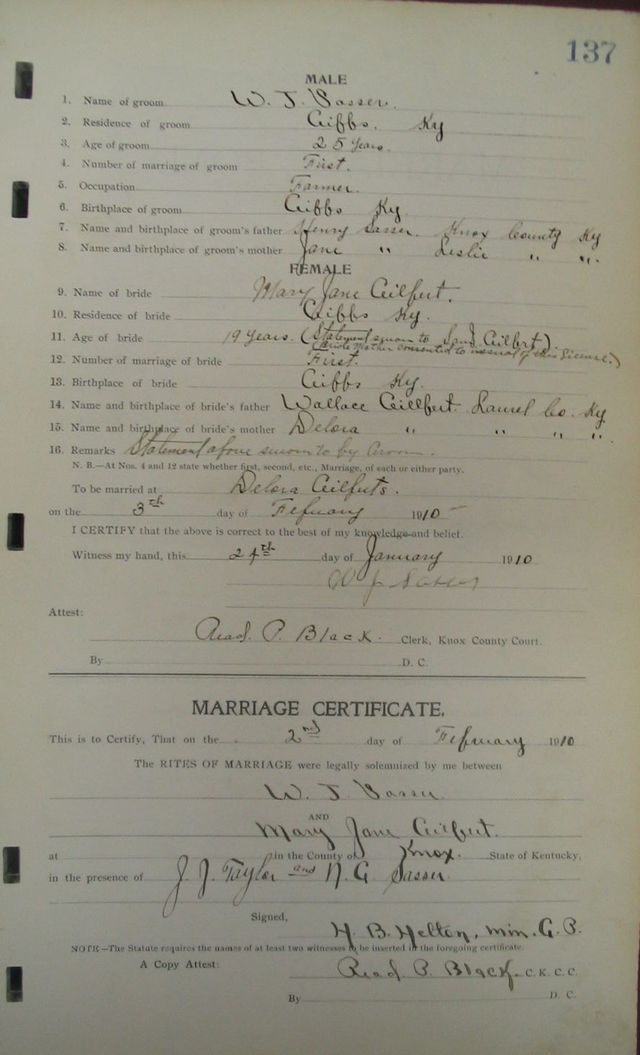 137
MALE
1. Name of groom W. J. Sasser.
2. Residence of groom Gibbs. Ky
3. Age of groom 25 years.
4. Number of marriage of groom First.
5. Occupation Farmer.
6. Birthplace of groom Gibbs Ky.
7. Name and birthplace of groom's father Henry Sasser. Knox County Ky
8. Name and birthplace of groom's mother Jane " Leslie " ".
FEMALE
9. Name of bride Mary Jane Gilbert.
10. Residence of bride Gibbs Ky.
11. Age of bride 19 years. (Statement sworn to Gilbert).
(Bride Mother consented to of this License.)
12. Number of marriage of bride First.
13. Birthplace of bride Gibbs Ky.
14. Name and birthplace of bride's father Wallace Gillbert. Laurel Co. Ky
15. Name and birthplace of bride's mother Delora " " ".
16. Remarks Statement above sworn to by Groom.
N. B.—At Nos. 4 and 12 state whether first, second, etc., Marriage, of each or either party.
To be married at Delora Gilberts.
on the 3th day of February 1910
I CERTIFY that the above is correct to the best of my knowledge and belief.
Witness my hand, this 24th day of January 1910
W J Sasser
Attest:
Read P. Black. Clerk, Knox County Court.
By D. C.
MARRIAGE CERTIFICATE.
This is to Certify, That on the 2nd day of February 1910
The RITES OF MARRIAGE were legally solemnized by me between
W. J. Sasser
AND
Mary Jane Gilbert.
at in the County of Knox. State of Kentucky,
in the presence of J. J. Taylor and N. G. Sasser.
Signed,
H. B. Helton, min. G. P.
NOTE—The Statute requires the names of at least two witnesses to be inserted in the foregoing certificate.
A Copy Attest: Read P. Black. C. K. C. C.
By D. C.